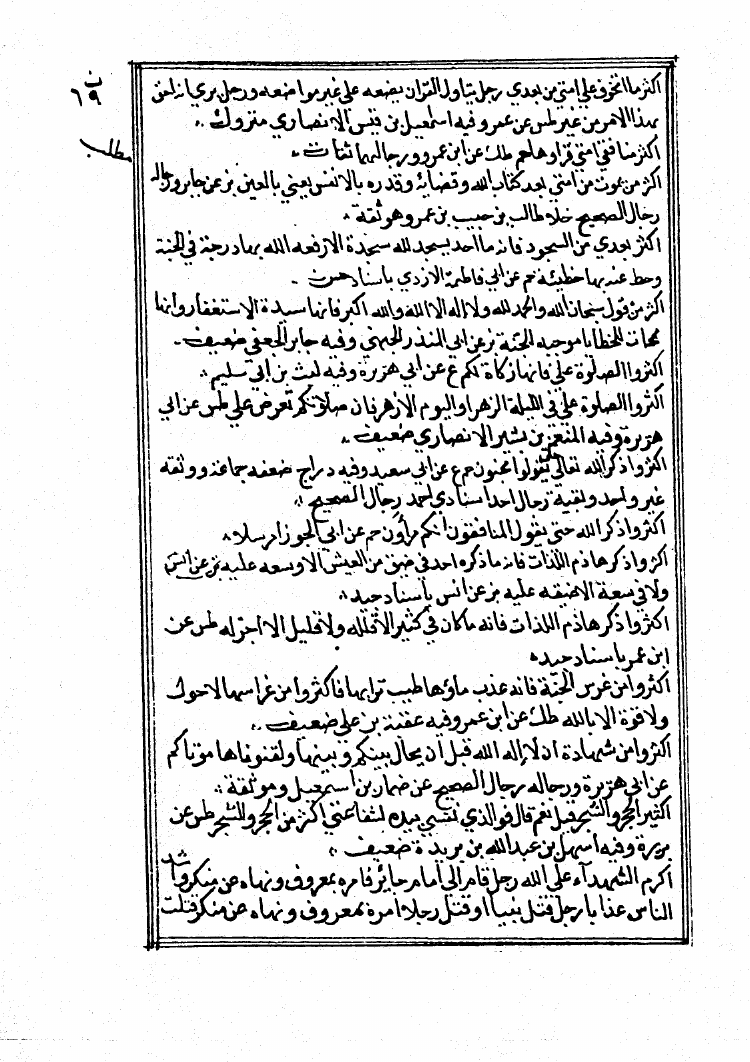 ن
٦٩
مطلب
اكثر ما اتخوف على امتي من بعدي رجل يتاول القران يضعه على غير مواضعه ورجل يرى انه احق
بهذا الامر من غيره طس عن عمر وفيه اسمعيل بن قيس الانصاري متروك
اكثر منافقي امتي قراوها حم طك عن ابن عمرو ورجالهما ثقات
اكثر من يموت من امتي بعد كتاب الله وقضائه وقدره بالانفس يعني بالعين بز عن جابر ورجاله
رجال الصحيح خلا طالب بن حبيب بن عمرو وهو ثقة
اكثر بعدي من السجود فانه ما احد يسجد لله سجدة الا رفعه الله بها درجة في الجنة
وحط عنه بها خطيئة حم عن ابي فاطمة الازدي باسناد حسن
اكثر من قول سبحان الله والحمد لله ولا اله الا الله والله اكبر فانها سيدة الاستغفار وانها
ممحات للخطايا موجبه الجنة بز عن ابي المنذر الجهني وفيه جابر الجعفي ضعيف
اكثروا الصلوة علي فانها زكاة لكم ع عن ابي هريرة وفيه ليث بن ابي سليم
اكثروا الصلوة علي في الليلة الزهرا واليوم الازهر فان صلاتكم تعرض علي طس عن ابي
هريرة وفيه عبد المنعم بن بشير الانصاري ضعيف
اكثروا ذكر الله تعالى حتى يقولوا مجنون حم ع عن ابي سعيد وفيه دراج ضعفه جماعة ووثقه
غير واحد وبقية رجال احد اسنادي احمد رجال الصحيح
اكثروا ذكر الله حتى يقول المنافقون انكم مرأون حم عن ابي الجوزا مرسلا
اكثروا ذكر هاذم اللذات فانه ما ذكره احد في ضيق من العيش الا وسعه عليه بز عن انس
ولا في سعة الا ضيقه عليه بز عن انس باسناد جيد
اكثروا ذكر هاذم اللذات فانه ما كان في كثير الا قلله ولا قليل الا اجزله طس عن
ابن عمر باسناد جيد
اكثروا من غرس الجنة فانه عذب ماؤها طيب ترابها فاكثروا من غراسها لا حول
ولا قوة الا بالله طك عن ابن عمر وفيه عقبة بن علي ضعيف
اكثروا من شهادة ان لا اله الله قبل ان يحال بينكم وبينها ولقنوها موتاكم
عن ابي هريرة ورجاله رجال الصحيح عن ضمار بن اسمعيل وهو ثقة
اكثير الحجر والشجر قيل نعم قال فوالذي نفسي بيده لشفاعتي اكثر من الحجر والشجر طس عن
بريرة وفيه اسهل بن عبد الله بن بريدة ضعيف
اكرم الشهدآء على الله رجل قام الى امام جائر فامره بمعروف ونهاه عن منكر واشد
الناس عذابا رجل قتل نبيا او قتل رجلا امره بمعروف ونهاه عن منكر قتلت